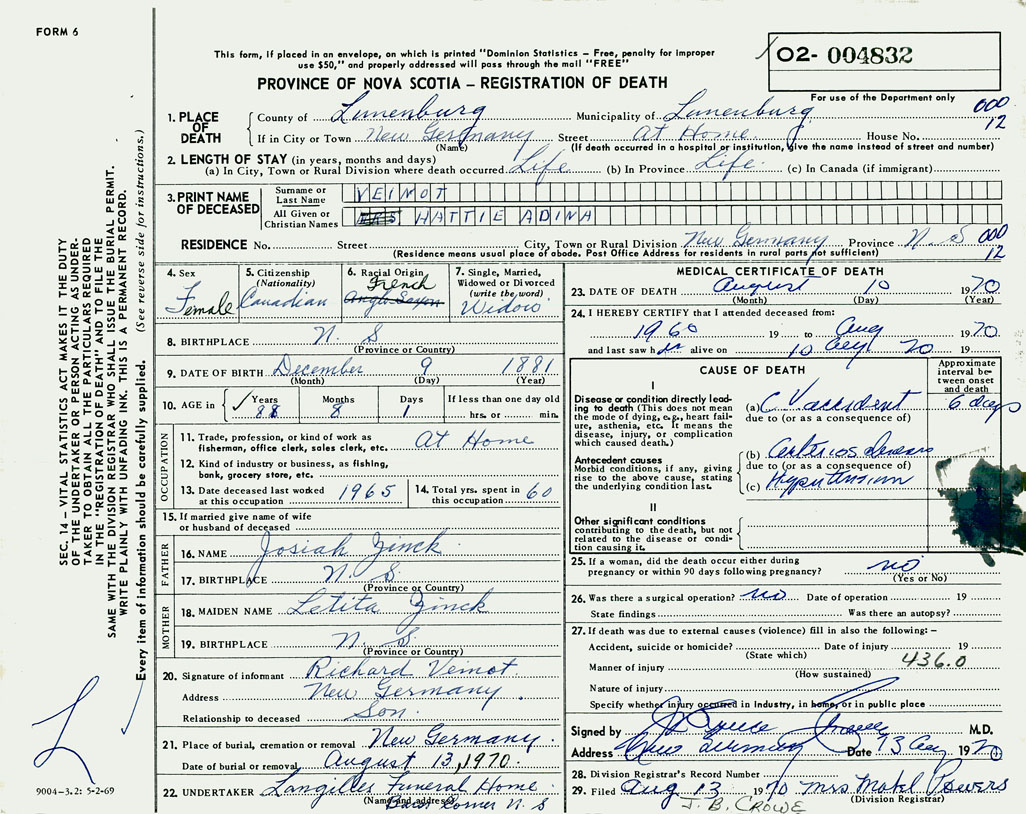 FORM 6
This form, if placed in an envelope, on which is printed "Dominion Statistics – Free, penalty for improper
use $50," and properly addressed will pass through the mail "FREE"
PROVINCE OF NOVA SCOTIA – REGISTRATION OF DEATH
02- 004832
For use of the Department only
1. PLACE OF DEATH County of Lunenburg Municipality of Lunenburg 000
If in City or Town New Germany Street At Home House No. 12
(Name) (If death occurred in a hospital or institution, give the name instead of street and number)
2. LENGTH OF STAY (in years, months and days)
(a) In City, Town or Rural Division where death occurred Life (b) In Province Life. (c) In Canada (if immigrant)
3. PRINT NAME OF DECEASED Surname or Last Name VEINOT
All Given or Christian Names HATTIE ADINA
RESIDENCE No. Street City, Town or Rural Division New Germany Province N. S 000
(Residence means usual place of abode. Post Office Address for residents in rural parts not sufficient) 12
4. Sex Female
5. Citizenship (Nationality) Canadian
6. Racial Origin French Anglo Saxon
7. Single, Married, Widowed or Divorced (write the word) Widow
8. BIRTHPLACE N. S
(Province or Country)
9. DATE OF BIRTH December 9 1881
(Month) (Day) (Year)
10. AGE in Years 88 Months 8 Days 1 If less than one day old hrs. or min.
OCCUPATION
11. Trade, profession, or kind of work as fisherman, office clerk, sales clerk, etc. At Home
12. Kind of industry or business, as fishing, bank, grocery store, etc.
13. Date deceased last worked at this occupation 1965
14. Total yrs. spent in this occupation 60
15. If married give name of wife or husband of deceased
FATHER
16. NAME Josiah Zinck
17. BIRTHPLACE N. S
(Province or Country)
MOTHER
18. MAIDEN NAME Letita Zinck
19. BIRTHPLACE N. S.
(Province or Country)
20. Signature of informant Richard Veinot.
Address New Germany
Relationship to deceased Son.
21. Place of burial, cremation or removal New Germany.
Date of burial or removal August 13, 1970.
22. UNDERTAKER Langilles Funeral Home
(Name and address) Corner N. S
MEDICAL CERTIFICATE OF DEATH
23. DATE OF DEATH August 10 1970
(Month) (Day) (Year)
24. I HEREBY CERTIFY that I attended deceased from:
1960 19 to Aug 1970
and last saw her alive on 10 Aug 70 19
CAUSE OF DEATH
Approximate interval between onset and death
I
Disease or condition directly leading to death (This does not mean the mode of dying, e.g., heart failure, asthenia, etc. It means the disease, injury, or complication which caused death.)
(a) C V accident 6 days
due to (or as a consequence of)
Antecedent causes
Morbid conditions, if any, giving rise to the above cause, stating the underlying condition last.
(b)
due to (or as a consequence of)
(c) Hypertension
II
Other significant conditions
contributing to the death, but not related to the disease or condition causing it.
25. If a woman, did the death occur either during pregnancy or within 90 days following pregnancy? no
(Yes or No)
26. Was there a surgical operation? no Date of operation 19
State findings Was there an autopsy?
27. If death was due to external causes (violence) fill in also the following: –
Accident, suicide or homicide? Date of injury 19
(State which) 436.0
Manner of injury
(How sustained)
Nature of injury
Specify whether injury occurred in Industry, in home, or in public place
Signed by M.D.
Address New Germany Date 13 Aug 1970
28. Division Registrar's Record Number
29. Filed Aug 13 1970 Mrs Powers
(Division Registrar)
J. B. CROWE
SEC. 14 – VITAL STATISTICS ACT MAKES IT THE DUTY
OF THE UNDERTAKER OR PERSON ACTING AS UNDER-
TAKER TO OBTAIN ALL THE PARTICULARS REQUIRED
IN THE "REGISTRATION OF DEATH" AND TO FILE THE
SAME WITH THE DIVISION REGISTRAR WHO SHALL ISSUE THE BURIAL PERMIT.
WRITE PLAINLY WITH UNFADING INK. THIS IS A PERMANENT RECORD.
Every item of information should be carefully supplied. (See reverse side for instructions.)
9004-3.2: 5-2-69